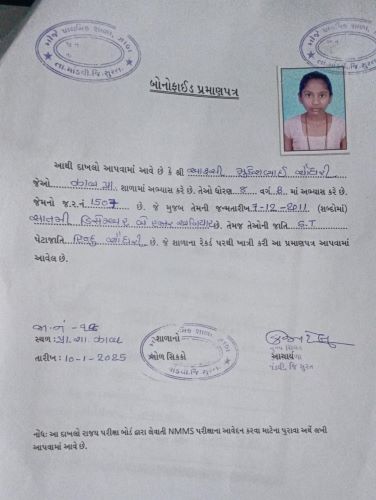 પ્રાથમિક શાળા,
તા. માંડવી, જિ. સુરત.
બોનોફાઈડ પ્રમાણપત્ર
આથી દાખલો આપવામાં આવે છે કે શ્રી
જેઓ કાલ્વ પ્રા. શાળામાં અભ્યાસ કરે છે. તેઓ ધોરણ 8 વર્ગ 8 માં અભ્યાસ કરે છે.
જેમનો જ.ર.નં 1507 છે. જે મુજબ તેમની જન્મતારીખ 7-12-2011 (શબ્દોમાં)
સાતમી ડિસેમ્બર બે હજાર અગિયાર છે. તેમજ તેઓની જાતિ
પેટાજાતિ હિન્દુ ચૌધરી છે. જે શાળાના રેકર્ડ પરથી ખાત્રી કરી આ પ્રમાણપત્ર આપવામાં
આવેલ છે.
જા.નં -
સ્થળ: પ્રા.શા. કાલ્વ
તારીખ: 10-1-2025
શાળાનો
ગોળ સિક્કો
આચાર્ય
નોંધ: આ દાખલો રાજ્ય પરીક્ષા બોર્ડ દ્વારા લેવાતી NMMS પરીક્ષાના આવેદન કરવા માટેના પુરાવા અર્થે લખી
આપવામાં આવે છે.